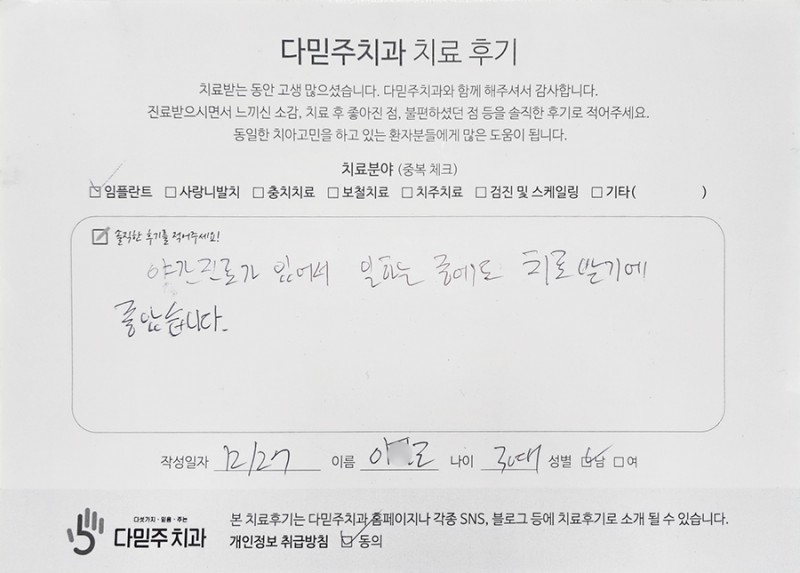 다믿주치과 치료 후기
치료받는 동안 고생 많으셨습니다. 다믿주치과와 함께 해주셔서 감사합니다.
진료받으시면서 느끼신 소감, 치료 후 좋아진 점, 불편하셨던 점 등을 솔직한 후기로 적어주세요.
동일한 치아고민을 하고 있는 환자분들에게 많은 도움이 됩니다.
치료분야 (중복 체크)
☑ 임플란트 □ 사랑니발치 □ 충치치료 □ 보철치료 □ 치주치료 □ 검진 및 스케일링 □ 기타( )
솔직한 후기를 적어주세요!
야간진료가 있어서 일하는 중에도 치료받기에
좋았습니다.
작성일자 12/27 이름 나이 30대 성별 ☑ 남 □ 여
다섯가지·믿음·주는
다믿주치과
본 치료후기는 다믿주치과 홈페이지나 각종 SNS, 블로그 등에 치료후기로 소개 될 수 있습니다.
개인정보 취급방침 ☑ 동의